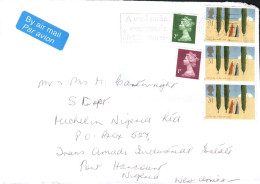 By air mail
Par avion
Mr & Mrs M. Cartwright
S Dept
Michelin Nigeria Ltd
P.O. Box 654
Trans Amadi Industrial Estate
Port Harcourt
Nigeria
West Africa